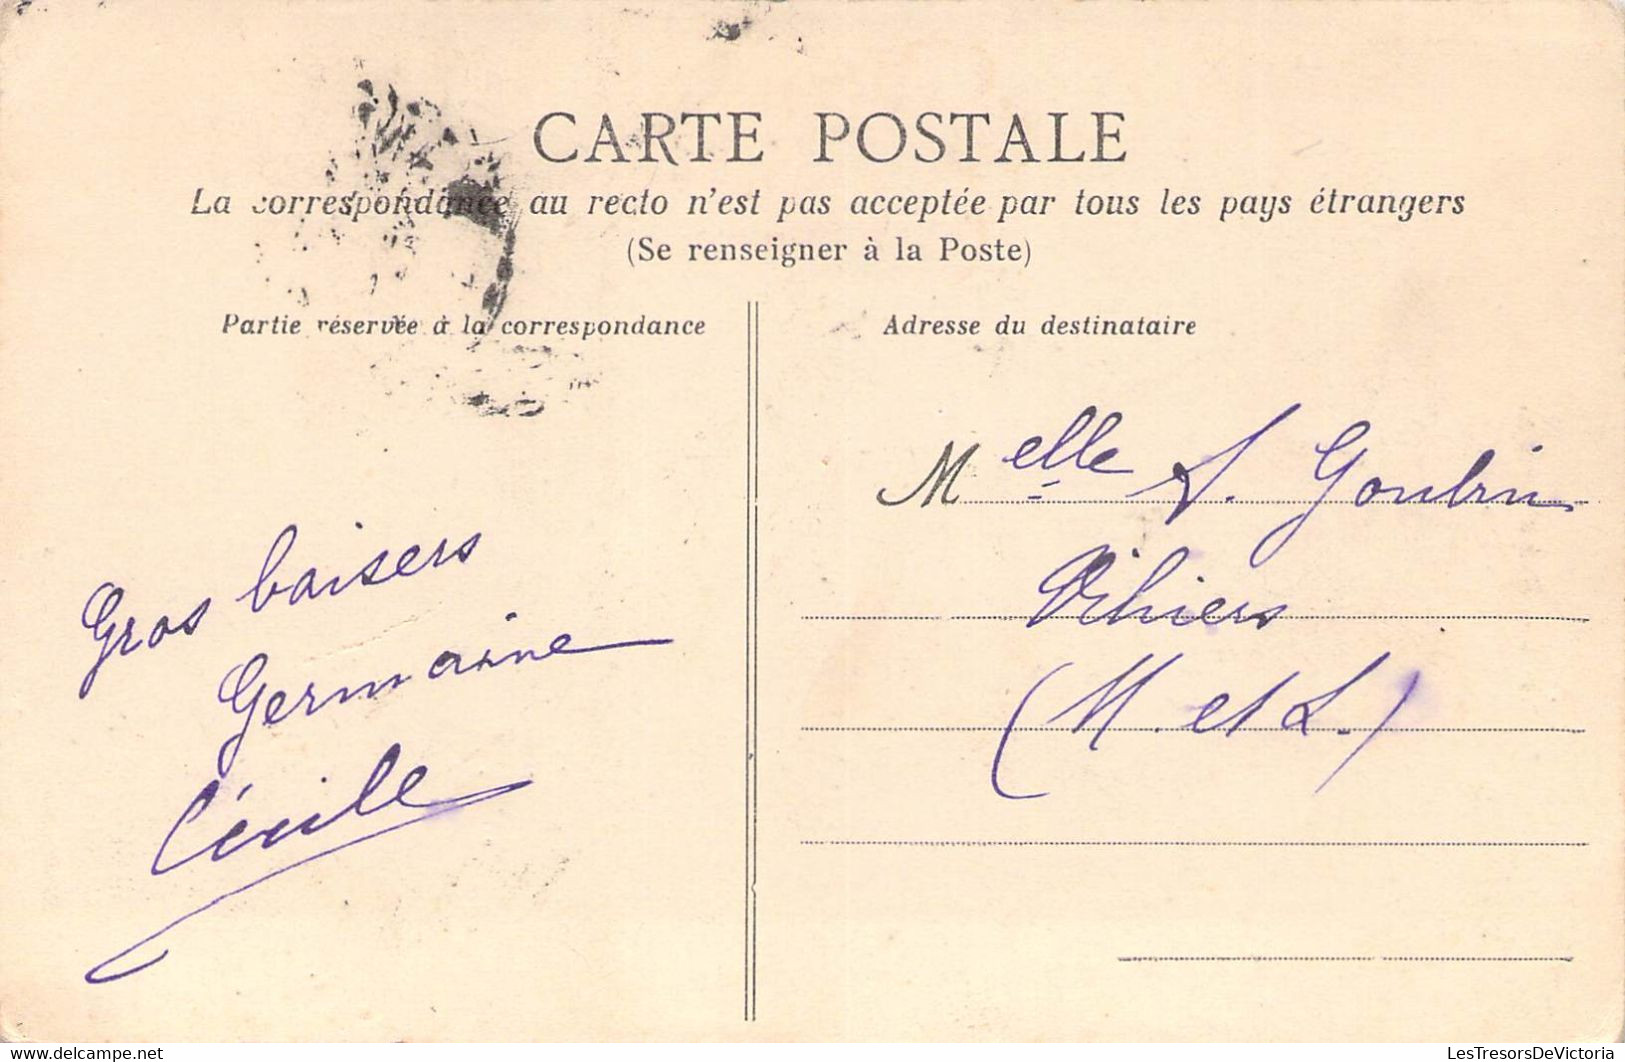 CARTE POSTALE
La correspondance au recto n'est pas acceptée par tous les pays étrangers
(Se renseigner à la Poste)
Partie réservée à la correspondance
Adresse du destinataire
Gros baisers
Germaine
Cécile
Melle S. Goubin
Vihiers
(M. et L.)
LesTresorsDeVictoria
delcampe.net